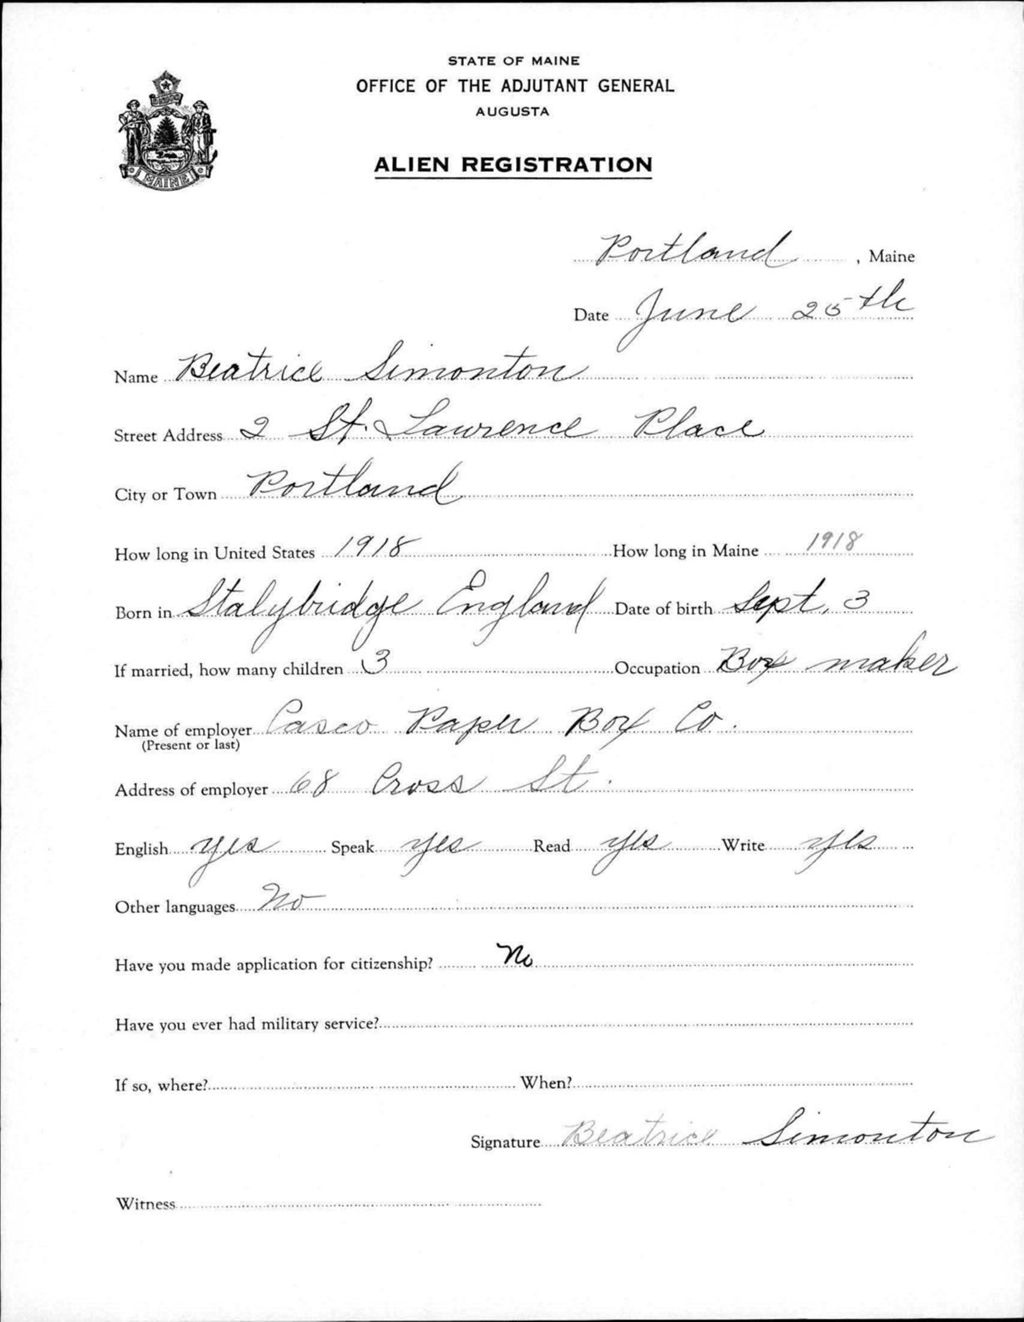 STATE OF MAINE
OFFICE OF THE ADJUTANT GENERAL
AUGUSTA
ALIEN REGISTRATION
MAINE
Portland, Maine
Date June 25th
Name Beatrice Simonton
Street Address 2 St. Lawrence Place
City or Town Portland
How long in United States 1918 How long in Maine 1918
Born in Stalybridge England Date of birth Sept. 3
If married, how many children 3 Occupation Box maker
Name of employer Casco Paper Box Co.
(Present or last)
Address of employer 68 Cross St.
English yes Speak yes Read yes Write yes
Other languages No
Have you made application for citizenship? No
Have you ever had military service?
If so, where? When?
Signature Beatrice Simonton
Witness